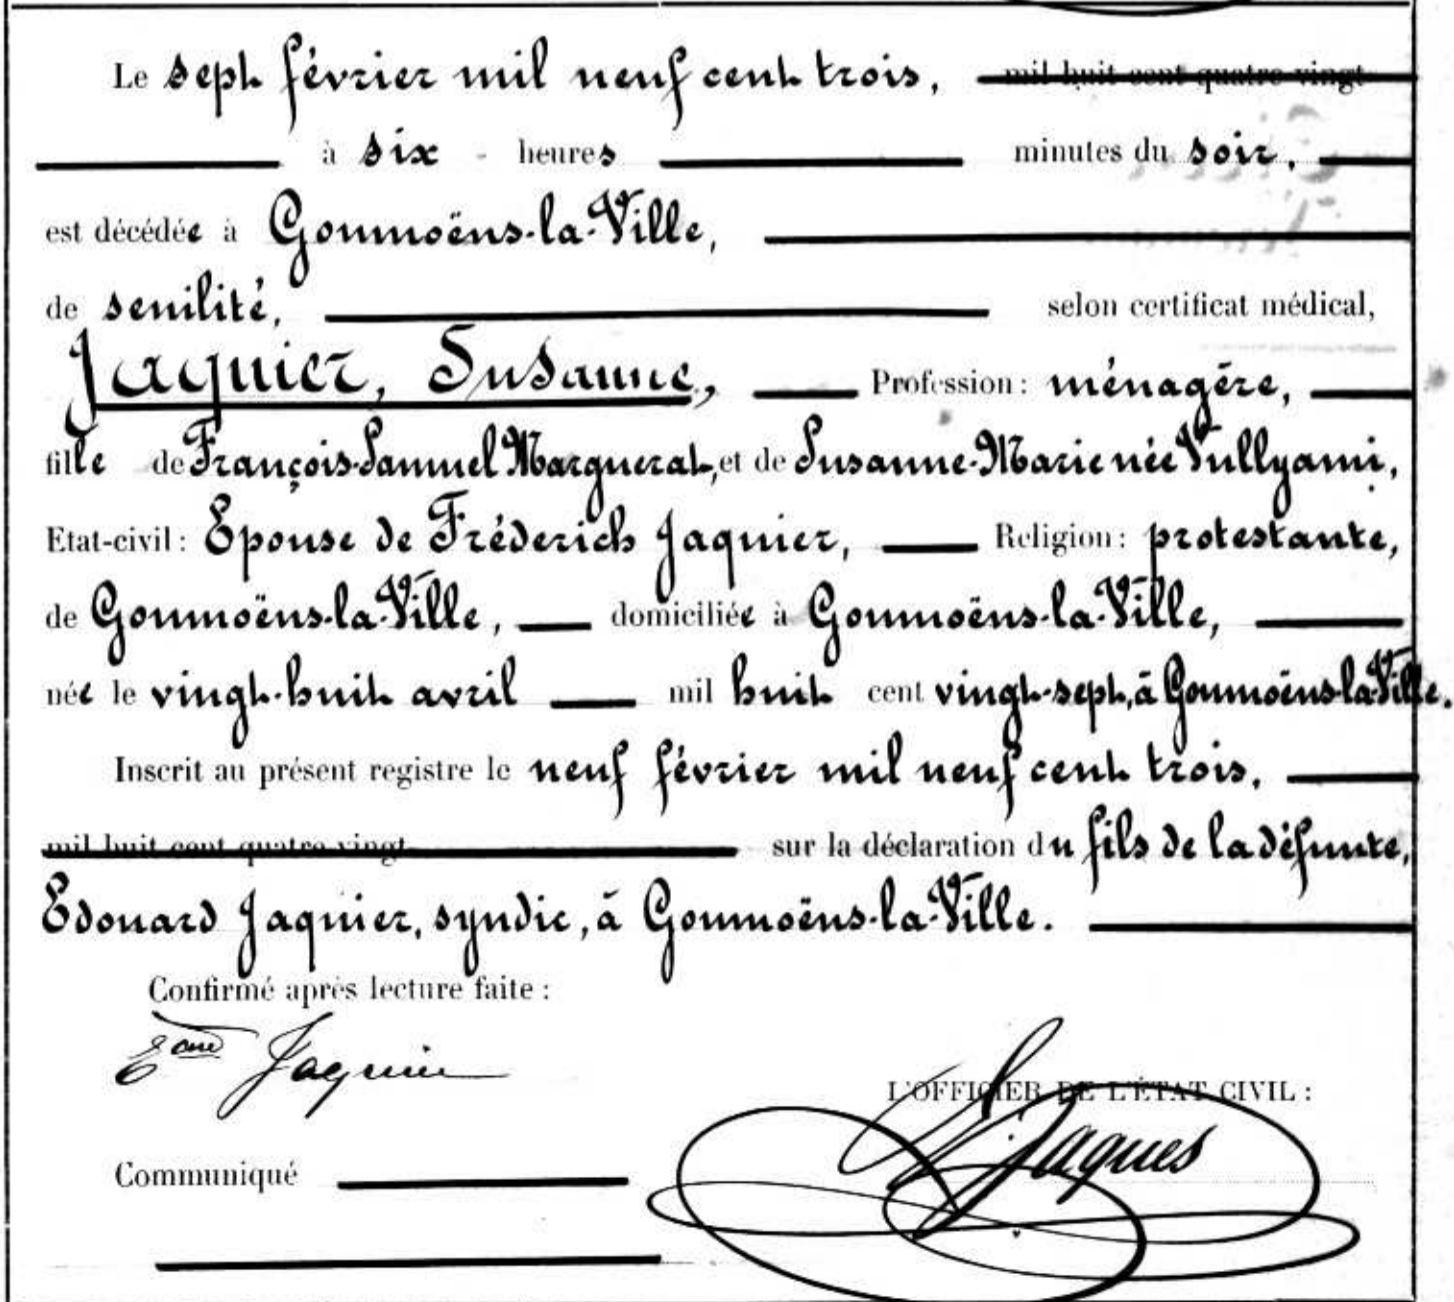 Le sept février mil neuf cent trois, mil huit cent quatre-vingt
à six - heures minutes du soir,
est décédée à Goumoëns-la-Ville,
de senilité, selon certificat médical,
Jaquier, Susanne, Profession: ménagère,
fille de François-Samuel Marguerat, et de Susanne-Marie née Vullyami,
Etat-civil: Epouse de Fréderich Jaquier, Religion: protestante,
de Goumoëns-la-Ville, domiciliée à Goumoëns-la-Ville,
née le vingt-huit avril mil huit cent vingt-sept, à Goumoëns-la-Ville.
Inscrit au présent registre le neuf février mil neuf cent trois,
mil huit cent quatre-vingt sur la déclaration du fils de la défunte,
Edouard Jaquier, syndic, à Goumoëns-la-Ville.
Confirmé après lecture faite:
Jaquier
L'OFFICIER DE L'ÉTAT CIVIL:
Jaques
Communiqué